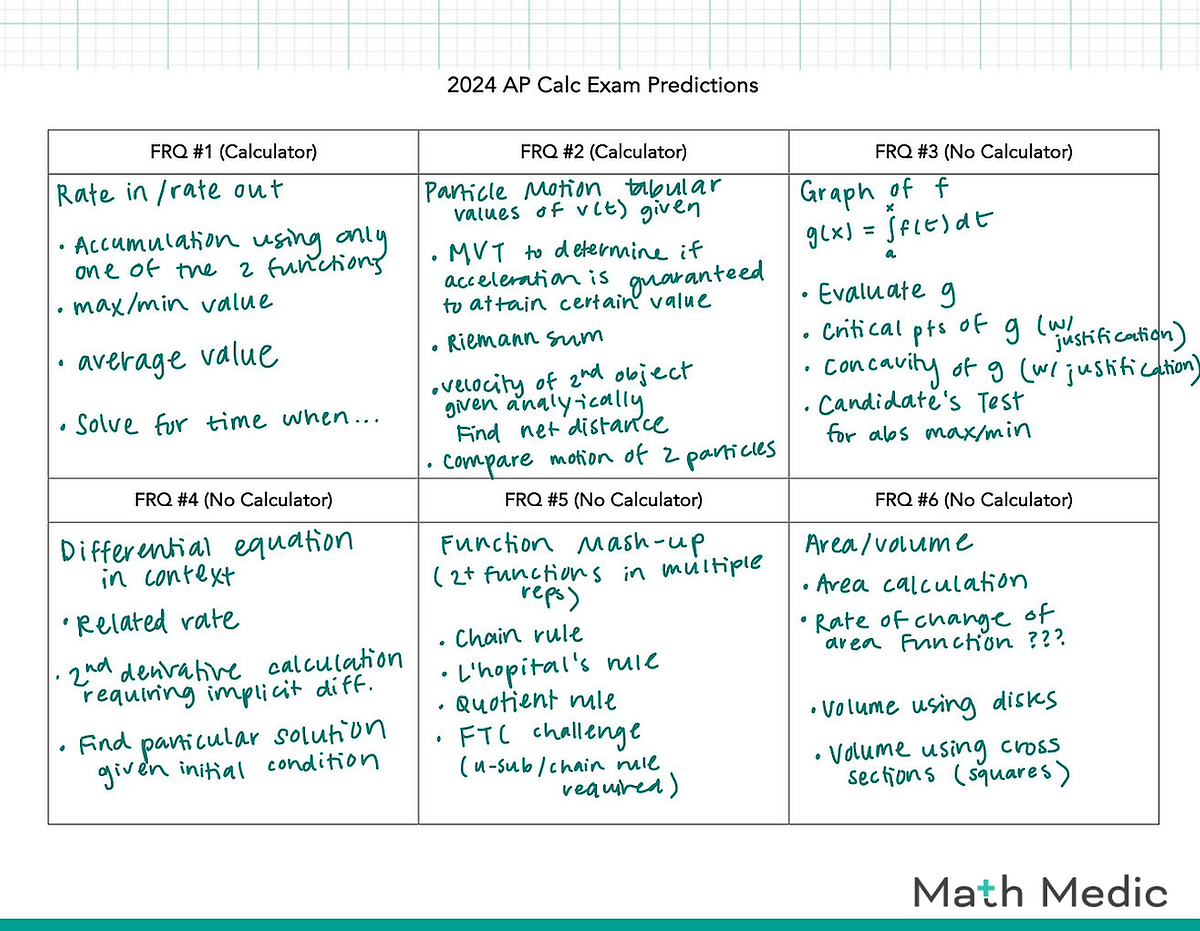 2024 AP Calc Exam Predictions
FRQ #1 (Calculator)
Rate in / rate out
• Accumulation using only
one of the 2 functions
• max/min value
• average value
• Solve for time when...
FRQ #2 (Calculator)
Particle Motion tabular
values of v(t) given
• MVT to determine if
acceleration is guaranteed
to attain certain value
• Riemann sum
• velocity of 2nd object
given analytically
Find net distance
• Compare motion of 2 particles
FRQ #3 (No Calculator)
Graph of f
g(x) = ∫ₐˣ f(t) dt
• Evaluate g
• Critical pts of g (w/
justification)
• Concavity of g (w/ justification)
• Candidate's Test
for abs max/min
FRQ #4 (No Calculator)
Differential equation
in context
• Related rate
• 2nd derivative calculation
requiring implicit diff.
• Find particular solution
given initial condition
FRQ #5 (No Calculator)
Function Mash-up
(2+ functions in multiple
reps)
• Chain rule
• L'hopital's rule
• Quotient rule
• FTC challenge
(u-sub/chain rule
required)
FRQ #6 (No Calculator)
Area/volume
• Area calculation
• Rate of change of
area function ???
• Volume using disks
• Volume using cross
sections (squares)
Math Medic